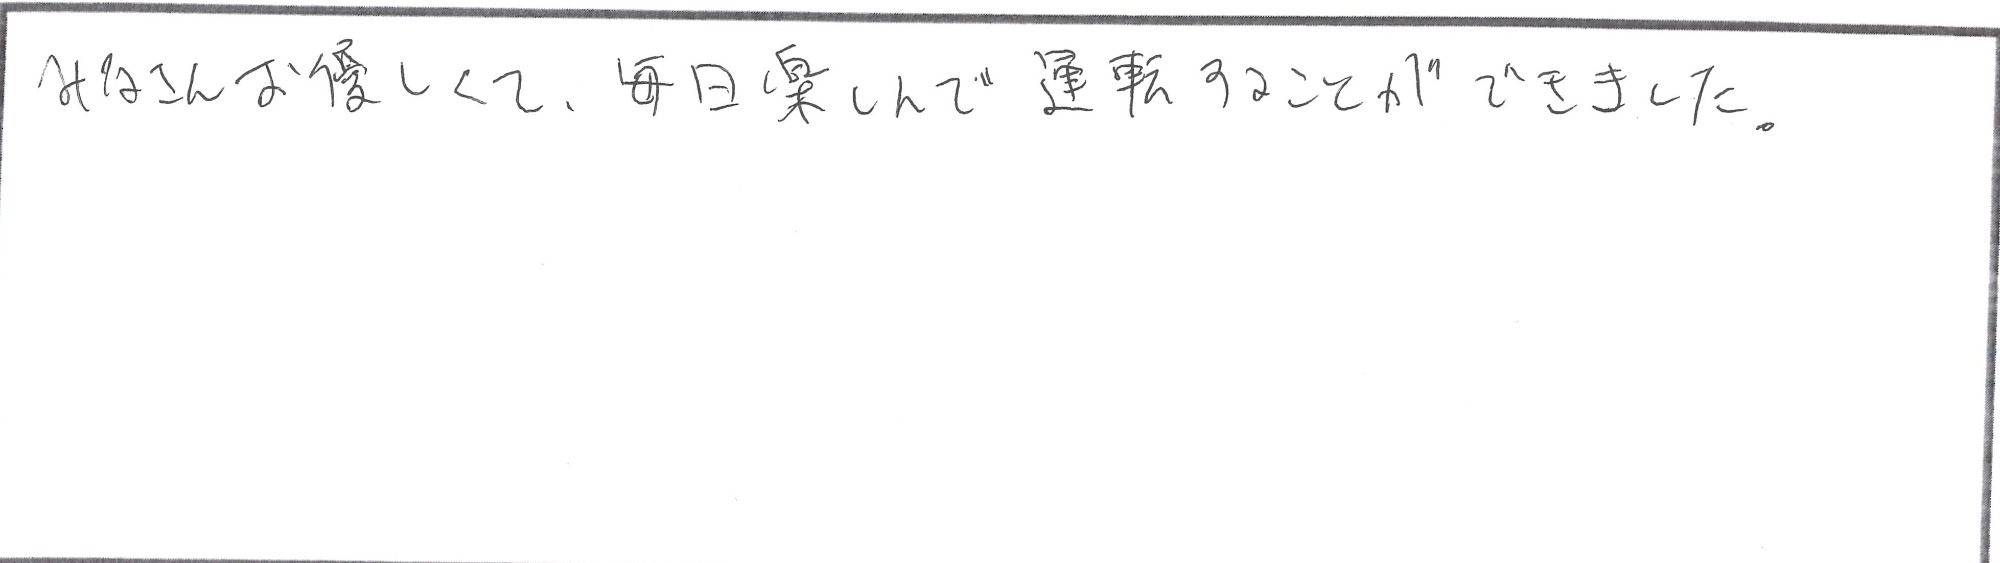 みなさんお優しくて、毎日楽しんで運転することができました。